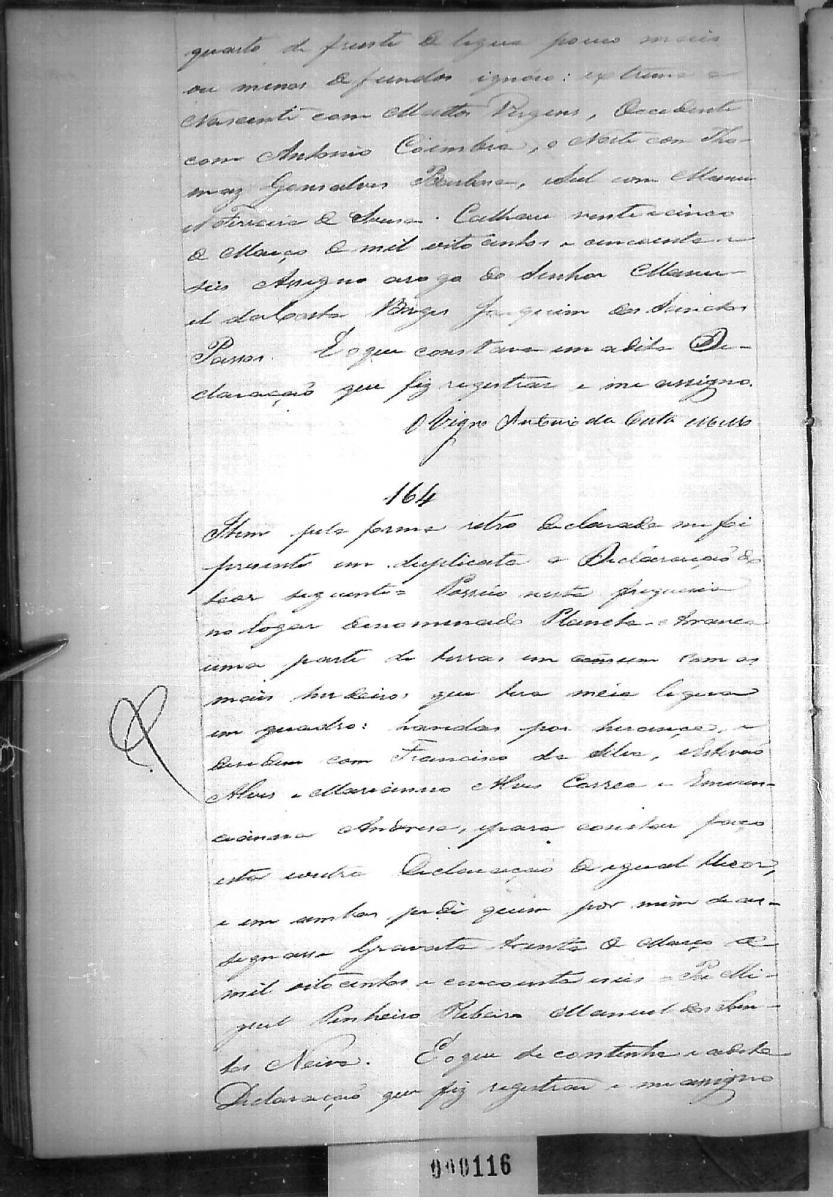 quarto de frente e legua pouco mais
ou menos de fundos ignóro: extrema o
Nascente com Mattos Virgens, Occidente
com Antonio Coimbra, o Norte com Tho-
maz Gonsalves Barbosa, e Sul com Manu-
el Ferreira de Sousa. Calhau vinte e cinco
de Março de mil oito centos e cincoenta e
seis Assigno arogo do Senhor Manu-
el da Costa Borges Joaquim dos Santos
Passos. E o que constava em a dita De-
claração que fiz registrar e me assigno.
O Vigro Antonio da Costa Mello
164
Item pela forma retro declarada me foi
presente em duplicata a Declaração do
teor seguinte = Possúo nesta freguezia
no logar denominado Planeta
uma parte de terras em comum com os
mais herdeiros que tera meia legua
em quadro: havidas por herança, e
dividem com Francisco da Silva, Estevão
Alves e Marianno Alves Correa e Emeren-
cianna, e para constar faço
esta e outra Declaração de igual theor,
e em ambas pedi quem por mim as as-
signasse Gravatá trinta de Março de
mil oito centos e cincoenta e seis = Pe Mi-
guel Pinheiro Ribeiro Manuel dos San-
tos Neiva. E o que se continha e a dita
Declaração que fiz registrar e me assigno
000116